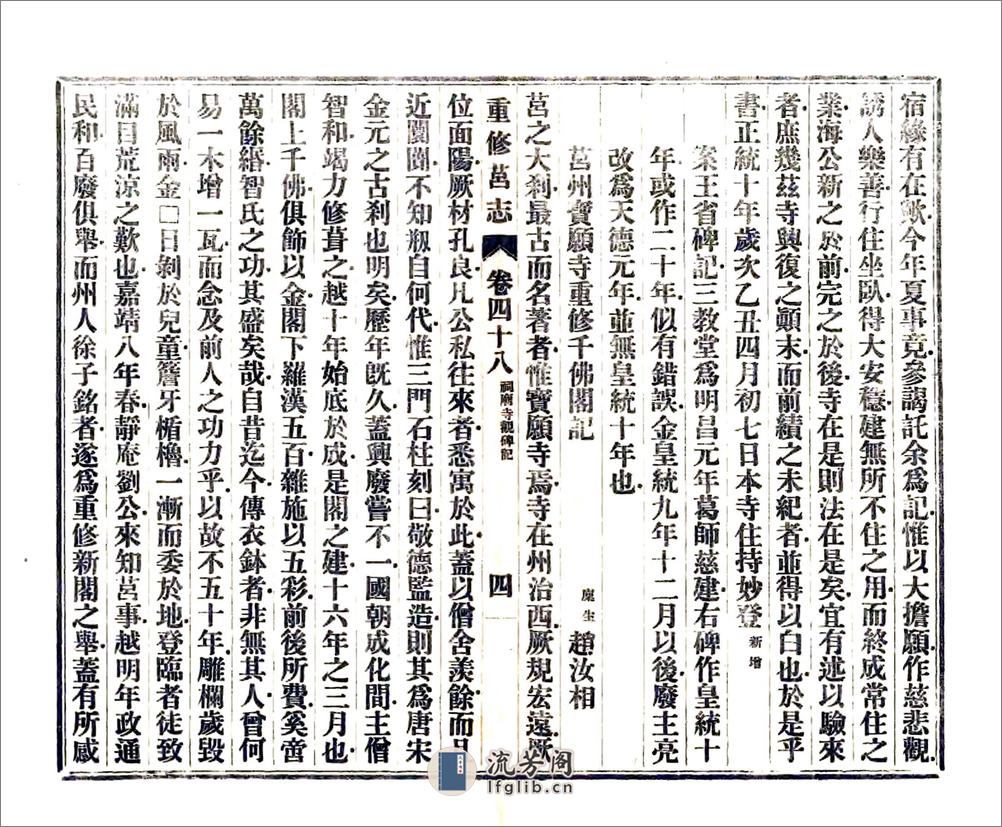 宿緣有在歟今年夏事竟參謁託余爲記惟以大擔願作慈悲觀
誘人樂善行住坐臥得大安穩建無所不住之用而終成常住之
業海公新之於前完之於後寺在是則法在是矣宜有述以驗來
者庶幾茲寺興復之顚末而前績之未紀者並得以白也於是乎
書正統十年歲次乙丑四月初七日本寺住持妙登新增
案王省碑記三教堂爲明昌元年葛師慈建右碑作皇統十
年或作二十年似有錯誤金皇統九年十二月以後廢主亮
改爲天德元年並無皇統十年也
莒州寶願寺重修千佛閣記 廩生 趙汝相
莒之大刹最古而名著者惟寶願寺焉寺在州治西厥規宏遠厥
重修莒志 卷四十八 祠廟寺觀碑記 四
位面陽厥材孔良凡公私往來者悉寓於此蓋以僧舍羡餘而且
近闤闠不知剏自何代惟三門石柱刻曰敬德監造則其爲唐宋
金元之古刹也明矣歷年旣久蓋興廢嘗不一國朝成化間主僧
智和竭力修葺之越十年始底於成是閣之建十六年之三月也
閣上千佛俱飾以金閣下羅漢五百雜施以五彩前後所費奚啻
萬餘緡智氏之功其盛矣哉自昔迄今傳衣鉢者非無其人曾何
易一木增一瓦而念及前人之功力乎以故不五十年雕欄歲毀
於風雨金□日剝於兒童簷牙楯櫓一漸而委於地登臨者徒致
滿目荒凉之歎也嘉靖八年春靜庵劉公來知莒事越明年政通
民和百廢俱舉而州人徐子銘者遂爲重修新閣之舉蓋有所感
流芳阁
lfglib.cn